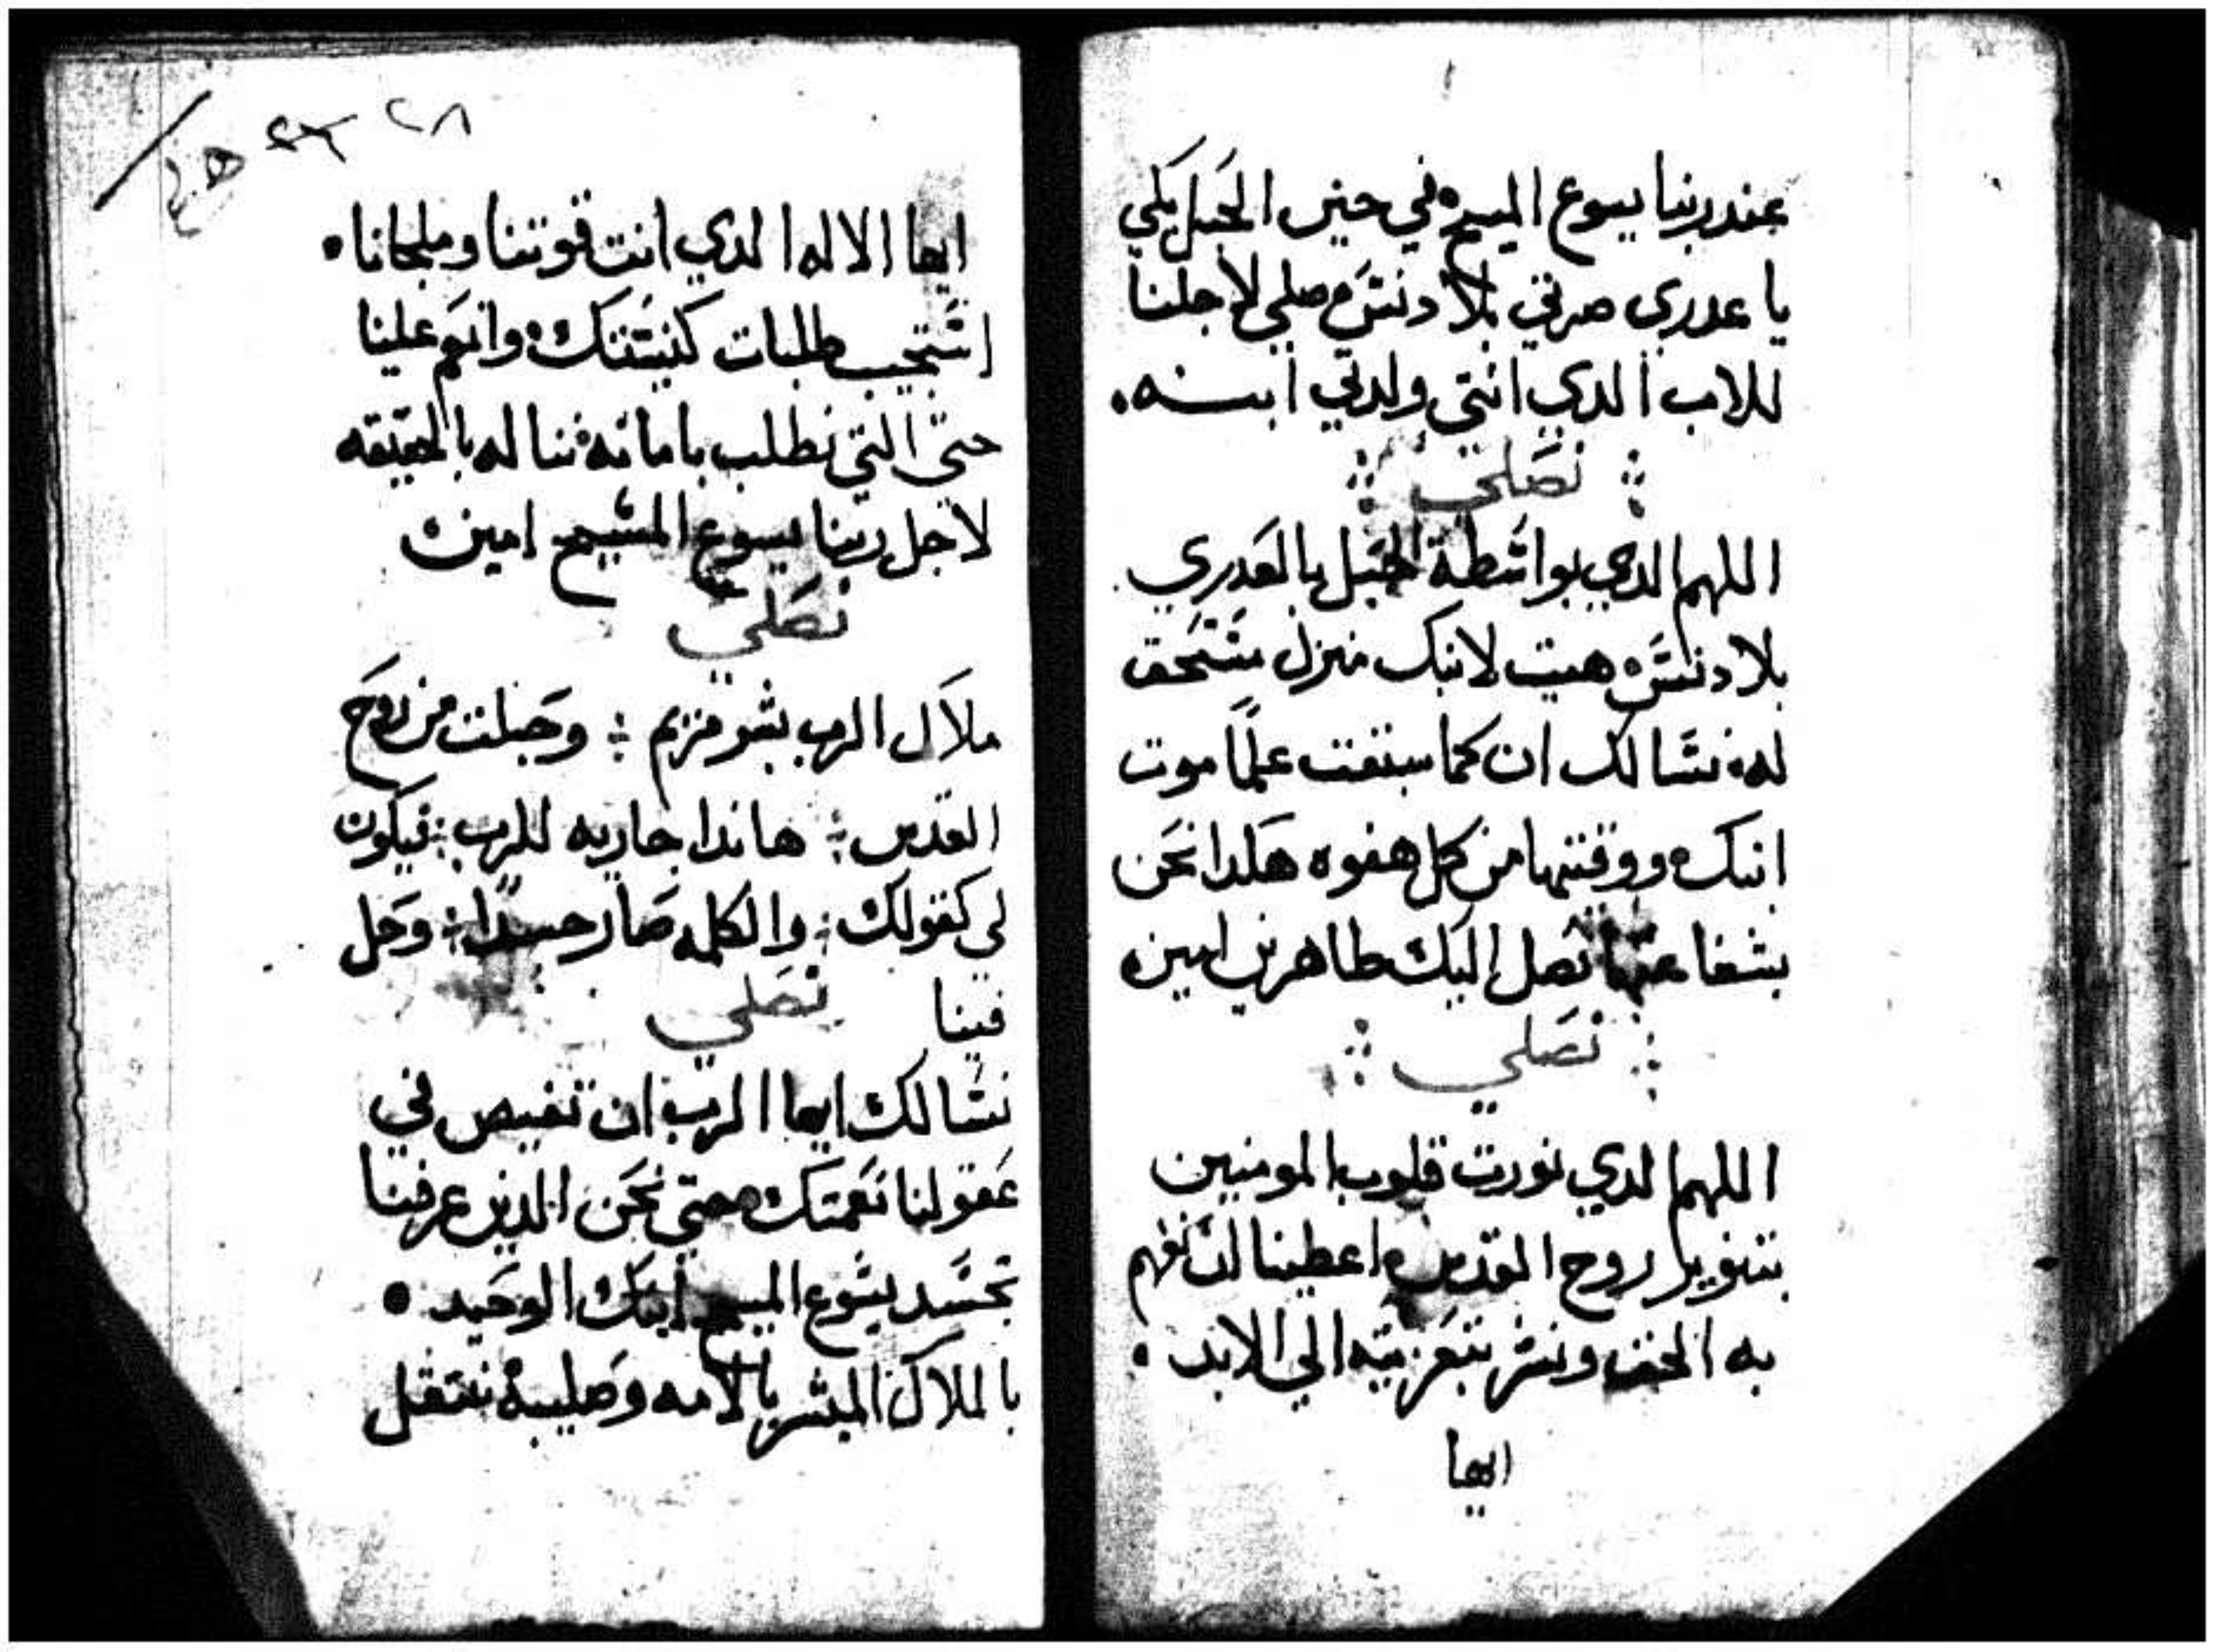 عند ربنا يسوع المسيح في حين الحبل بكي
يا عدري صرتي بلا دنس صلي لاجلنا
للاب الدي انتي ولدتي ابنه
نصلي
اللهم الدي بواسطة الحبل بالعدري
بلا دنس هييت لابنك منزل مستحق
له نسالك ان كما سبقت علما موت
ابنك ووقيتها من كل هفوه هكدا نحن
بشفاعتها نصل اليك طاهرين امين
نصلي
اللهم الدي نورت قلوب المومنين
بتنوير روح القدس اعطينا ان نفهم
به الحق ونسر بتعزيته الي الابد
ايها
٢٨
ايها الاله الدي انت قوتنا وملجانا
استجيب طلبات كنيستك وانعم علينا
حتي التي نطلب بامانه نناله بالحقيقه
لاجل ربنا يسوع المسيح امين
نصلي
ملاك الرب بشر مريم وحبلت من روح
القدس هاندا جاريه للرب فيكون
لي كقولك والكلمه صار جسدا وحل
فينا نصلي
نسالك ايها الرب ان تفيض في
عقولنا نعمتك حتي نحن الدين عرفنا
تجسد يسوع المسيح ابنك الوحيد
بالملاك المبشر بالامه وصليبه ننتقل